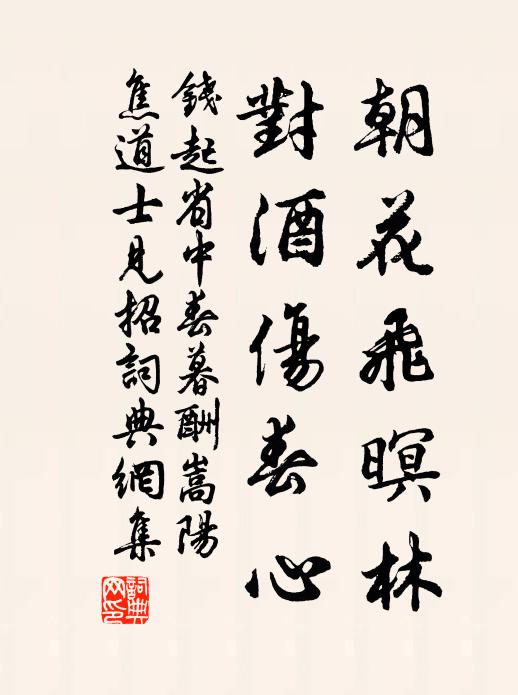 朝花飛暝林
對酒傷春心
錢起省中春暮酬嵩陽
焦道士見招詞典網集
詞典網印